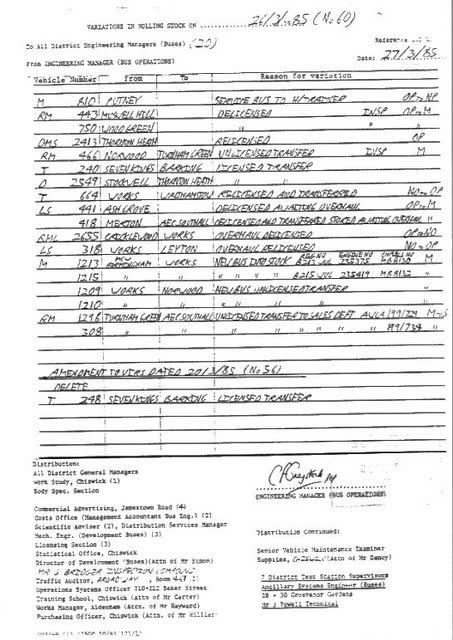 VARIATIONS IN ROLLING STOCK ON 26/3/1985 (No 60)
To All District Engineering Managers (Buses) (20)
Reference
From ENGINEERING MANAGER (BUS OPERATIONS)
Date: 27/3/85
Vehicle Number From To Reason for variation
M 810 PUTNEY SERVICE BUS TO H/TRAINER OP TO NP
RM 443 MUSWELL HILL DELICENSED INSP OP TO M
750 WOOD GREEN " " "
OMS 2413 THORNTON HEATH RELICENSED OP
RM 466 NORWOOD TURNHAM GREEN UNLICENSED TRANSFER INSP M
T 240 SEVEN KINGS BARKING LICENSED TRANSFER
D 2549 STOCKWELL THORNTON HEATH "
T 664 WORKS WALTHAMSTOW RELICENSED AND TRANSFERRED NO TO OP
LS 441 ASH GROVE DELICENSED AWAITING OVERHAUL OP TO M
418 MERTON AEC SOUTHALL DELICENSED AND TRANSFERRED STORED AWAITING OVERHAUL "
RML 2655 CRICKLEWOOD WORKS OVERHAUL DELICENSED OP TO NO
LS 318 WORKS LEYTON OVERHAUL RELICENSED NO TO OP
M 1213 BIRMINGHAM WORKS NEW BUS INTO STOCK REG NO B213 JUL ENGINE NO 235375 CHASSIS NO MB8130 M
1215 " " " " B215 JUL 235419 MB8132 "
1209 WORKS NORWOOD NEW BUS UNLICENSED TRANSFER "
1210 " " " " " "
RM 1296 TURNHAM GREEN AEC SOUTHALL UNLICENSED TRANSFER TO SALES DEPT
308 " " " " " "
AMENDMENT TO VIRS DATED 20/3/85 (No 56)
DELETE
T 248 SEVEN KINGS BARKING LICENSED TRANSFER
ENGINEERING MANAGER (BUS OPERATIONS)
Distribution:
All District General Managers
Work Study, Chiswick (1)
Body Spec. Section
Commercial Advertising, Jamestown Road (4)
Costs Office (Management Accountant Bus Eng.) (2)
Scientific Adviser (2), Distribution Services Manager
Mech. Engr. (Development Buses) (3)
Licensing Section (3)
Statistical Office, Chiswick
Director of Development (Buses) (Attn of Mr Simon)
MR S BRIDGER INSPECTION COMPOUND
Traffic Auditor, BROADWAY, Room
Operations Systems Officer 310-212 Baker Street
Training School, Chiswick (Attn of Mr Carter)
Works Manager, Aldenham (Attn. of Mr Hayward)
Purchasing Officer, Chiswick (Attn. of Mr Hillier)
Distribution Continued:
Senior Vehicle Maintenance Examiner
Supplies, (Attn of Mr Dancy)
7 District Test Station Supervisors
Ancillary Systems Engineer (Buses)
18 - 30 Grosvenor Gardens
Mr J Powell Technical